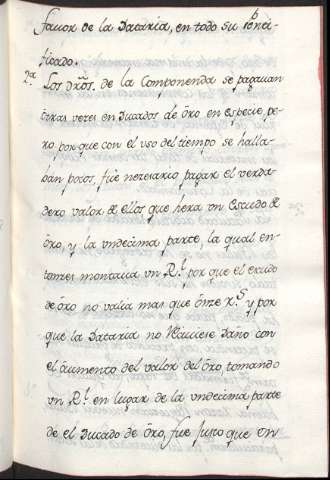 fauor de la Dataria, en todo su ponti-
ficado.
2ª Los drõs. de la Componenda se pagauan
otras vezes en ducados de õro en especie, pe-
ro por que con el vso del tiempo se halla-
ban pocos, fue neçesario pagar el verda-
dero valor de ellos que hera un escudo de
õro, y la vndecima parte, la qual en-
tonzes montaua vn Rˡ. por que el escudo
de õro no valia mas que õnze Rˢ y por
que la Dataria no Reciuiese daño con
el aumento del valor del õro, tomando
vn Rˡ. en lugar de la vndecima parte
de el ducado de õro, fue justo que vn